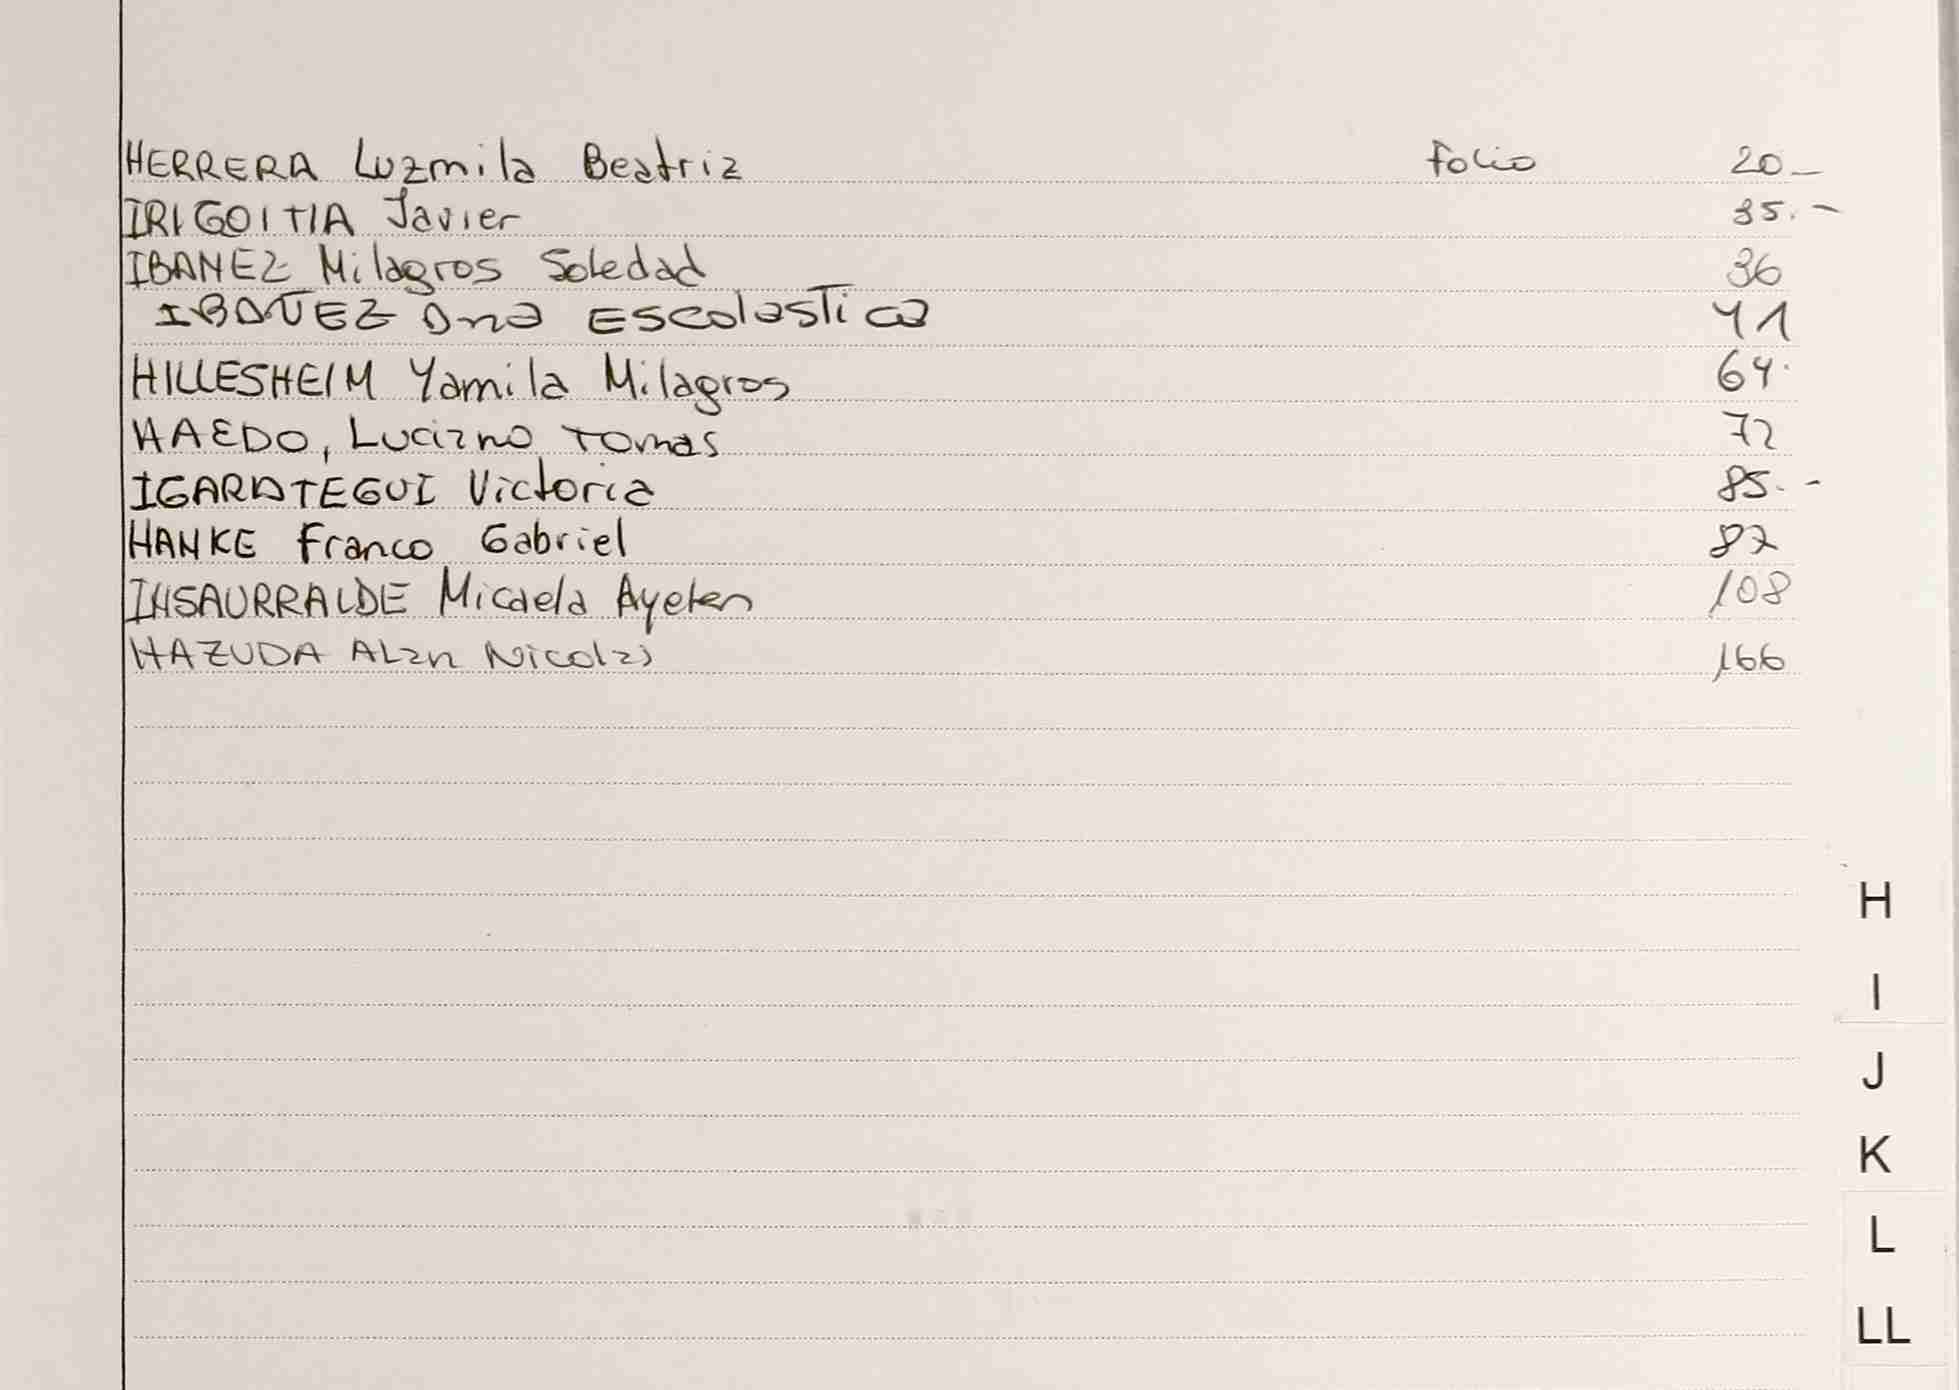 HERRERA Luzmila Beatriz folio 20.-
IRIGOITIA Javier 35.-
IBANEZ Milagros Soledad 36
IBAÑEZ Ana Escolastica 41
HILLESHEIM Yamila Milagros 64.
HAEDO, Luciano Tomas 72
IGARATEGUI Victoria 85.-
HANKE Franco Gabriel 87
INSAURRALDE Micaela Ayelen 108
HAZUDA Alan Nicolas 166
H
I
J
K
L
LL